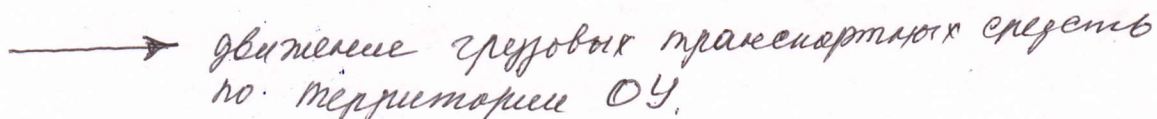 движение грузовых транспортных средств
по территории ОУ.